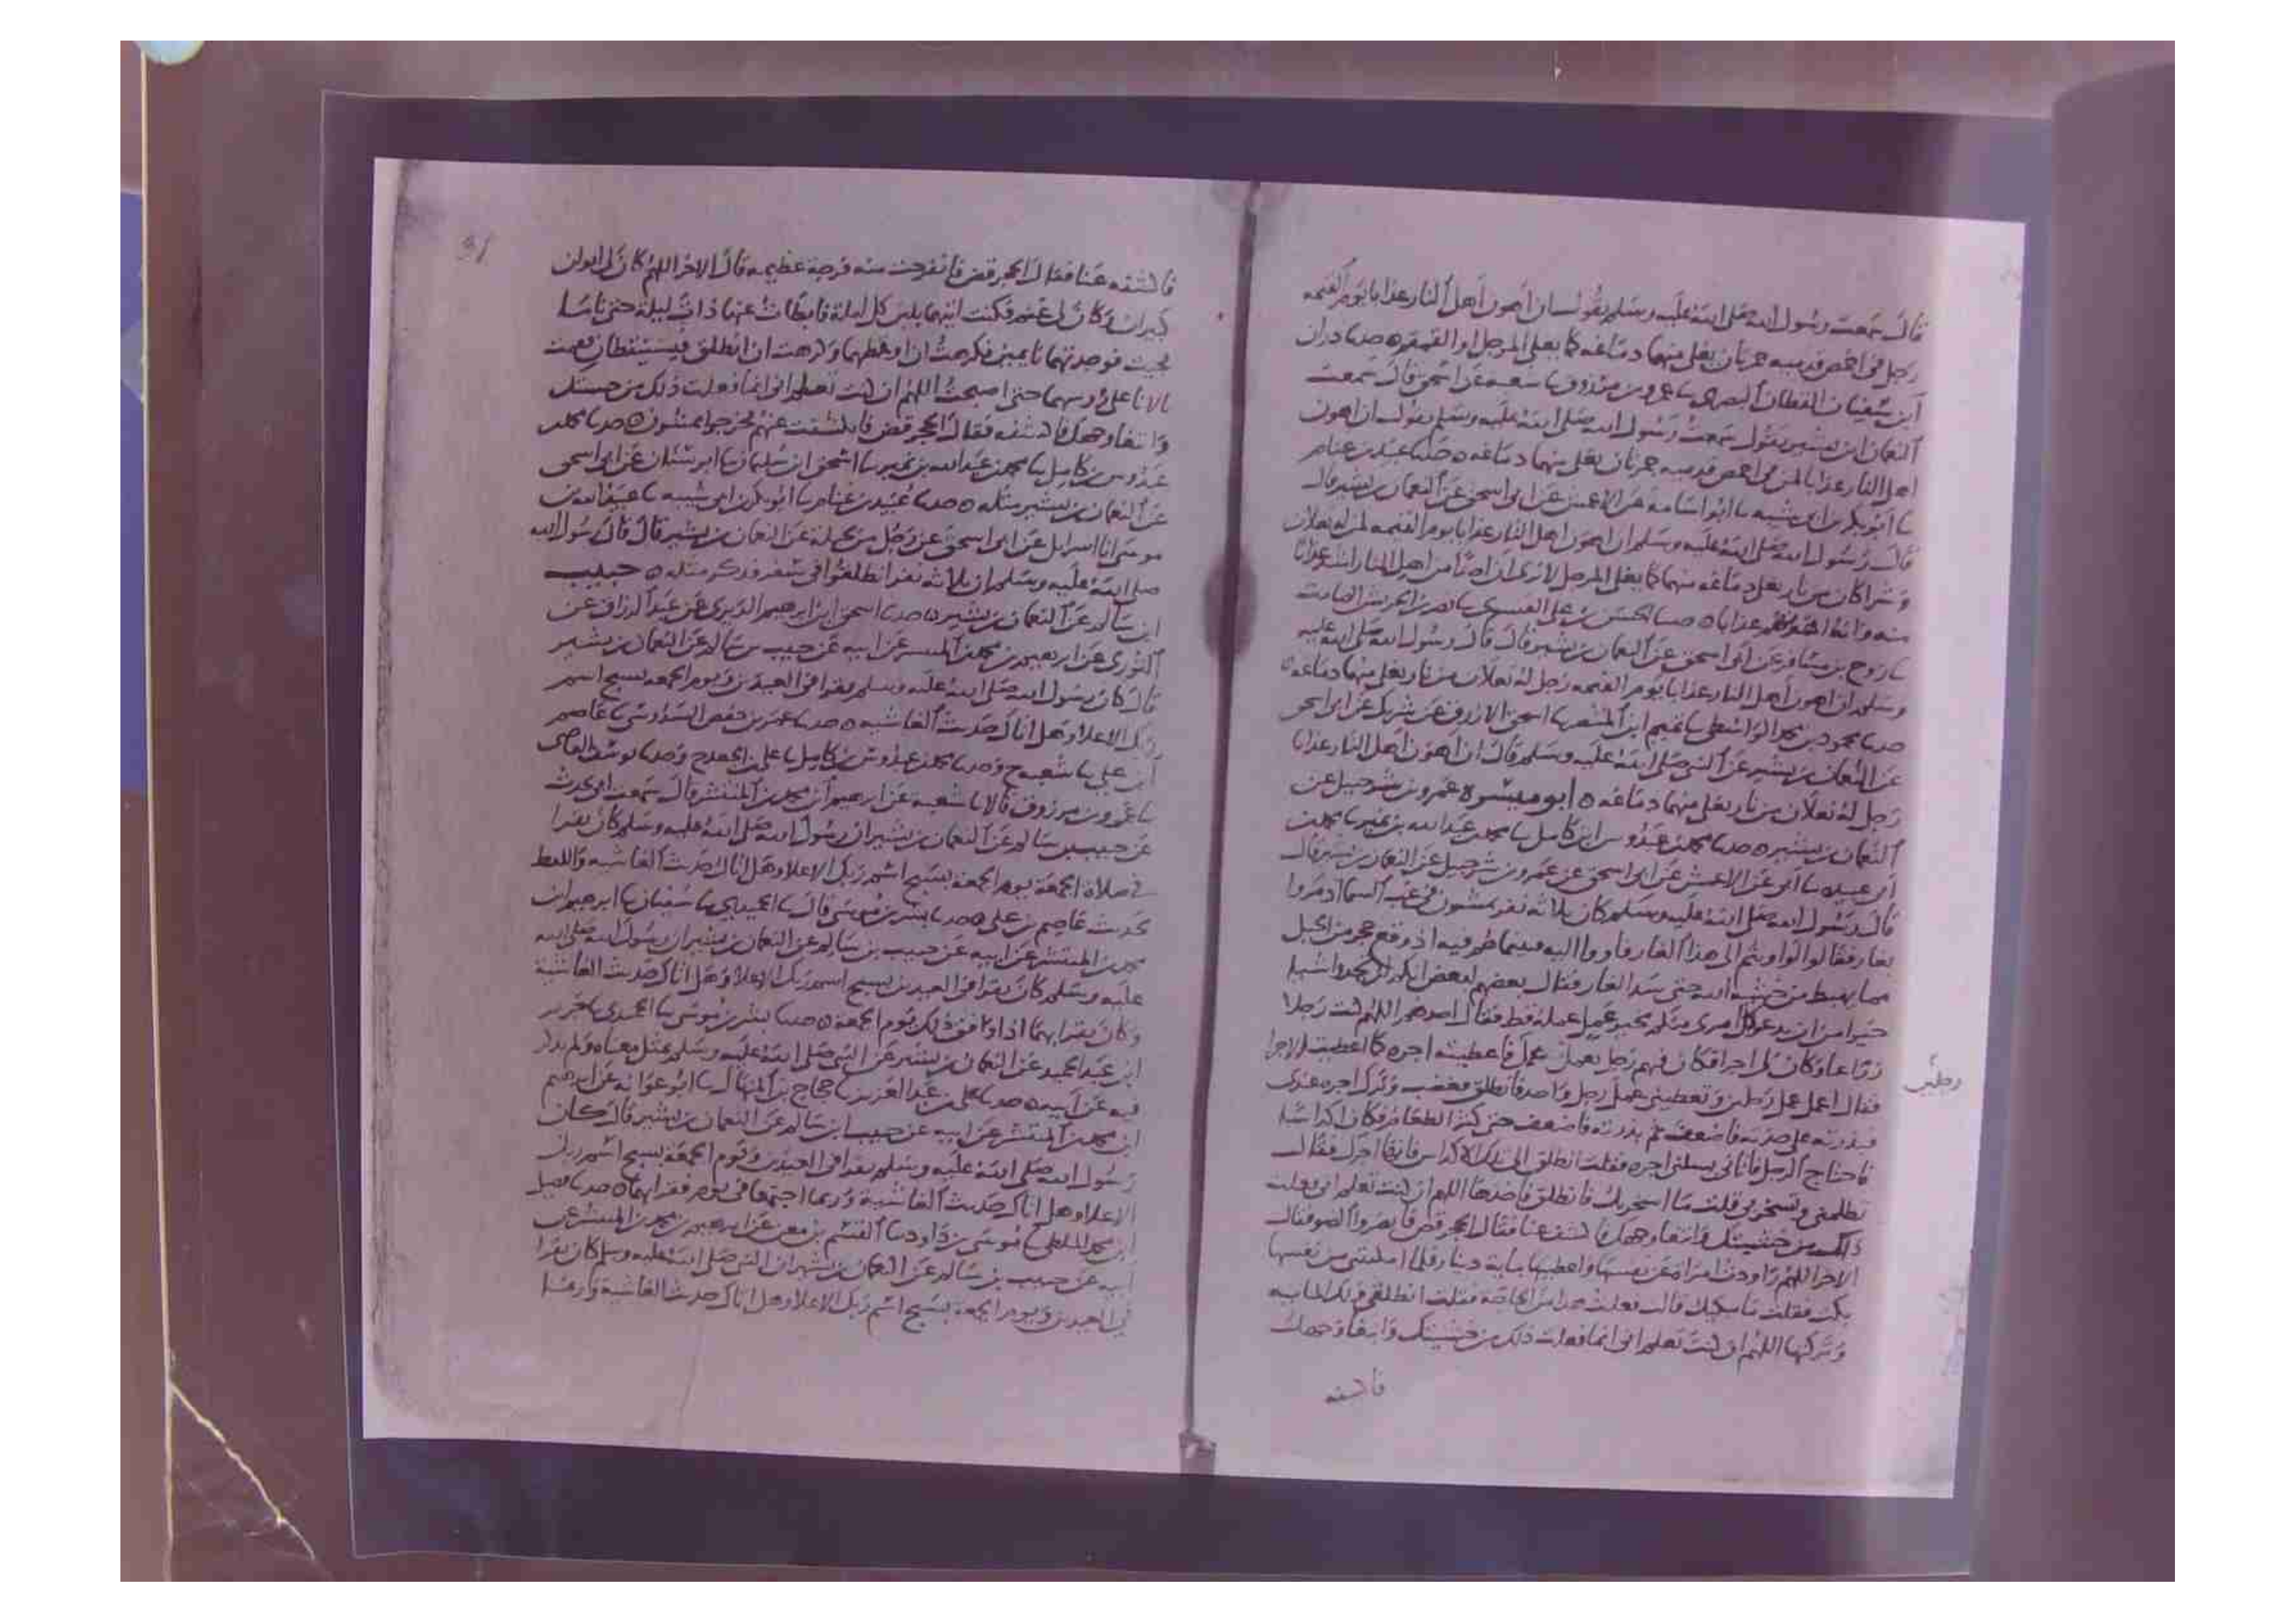 قال سمعت رسول الله صلى الله عليه وسلم يقول ان اهون اهل النار عذابا يوم القيمة
رجل في اخمص قدميه جمرتان يغلي منهما دماغه كما يغلي المرجل او القمقم ه حدثنا دران
ابن سفيان القطان البصري نا عمرو بن مرزوق نا شعبة عن ابي اسحق قال سمعت
النعمان بن بشير يقول سمعت رسول الله صلى الله عليه وسلم يقول ان اهون
اهل النار عذابا لمن في اخمص قدميه جمرتان يغلي منهما دماغه ه حدثنا عبيد بن غنام
نا ابو بكر بن ابي شيبه نا ابو اسامه عن الاعمش عن ابي اسحق عن النعمان بن بشير قال
قال رسول الله صلى الله عليه وسلم ان اهون اهل النار عذابا يوم القيمه لمن له نعلان
وشراكان من نار يغلي دماغه منهما كما يغلي المرجل لا يرى ان احدا من اهل النار اشد عذابا
منه وانه اهونهم عذابا ه حدثنا الحسن بن علي نا
نا روح بن مسافر عن ابي اسحق عن النعمان بن بشير قال قال رسول الله صلى الله عليه
وسلم ان اهون اهل النار عذابا يوم القيمه رجل له نعلان من نار يغلي منهما دماغه ه
حدثنا محمود بن محمد الواسطي نا تميم ابن المنتصر نا اسحق الازرق عن شريك عن ابي اسحق
عن النعمان بن بشير عن النبي صلى الله عليه وسلم قال ان اهون اهل النار عذابا
رجل له نعلان من نار يغلي منهما دماغه ه ابو ميسرة عمرو بن شرحبيل عن
النعمان بن بشير ه حدثنا محمد بن عبدوس ابن كامل نا محمد بن عبد الله بن نمير نا محمد بن
ابي عبيده نا ابي عن الاعمش عن ابي اسحق عن عمرو بن شرحبيل عن النعمان بن بشير قال
قال رسول الله صلى الله عليه وسلم كان ثلاثه نفر يمشون في غب السما اذ مروا
بغار فقالوا لو اويتم الى هذا الغار فاووا اليه فبينما هم فيه اذ وقع حجر من الجبل
مما يهبط من خشية الله حتى سد الغار فقال بعضهم لبعض انكم لن تجدوا شيا
خيرا من ان يدعو كل امرئ منكم بخير عمل عمله قط فقال احدهم اللهم كنت رجلا
زراعا وكان لي اجرا فكان فيهم رجل يعمل عمل فاعطيته اجره كما اعطيت الاجرا
فقال اعمل عمل رجلين وتعطيني عمل رجل واحد فانطلق فغضب وترك اجره عندي
رجلين
فبذرته على حدته فاضعف ثم بذرته فاضعف حتى كثر الطعام فكان اكداسا
فاحتاج الرجل فاتاني يسلني اجره فقلت انطلق الى تلك الاكداس فانها اجرك فقال
تظلمني وتسخر بي قلت ما اسخر بك فانطلق فاخذها اللهم ان كنت تعلم اني فعلت
ذلك من خشيتك وابتغا وجهك فاكشفه عنا فقال الحجر قض فابصروا الضو فقال
الاخر اللهم راودت امراة عن نفسها واعطيتها ماية دينار فلما امكنتني من نفسها
بكت فقلت ما يبكيك قالت فعلت هذا من الحاجة فقلت انطلقي فلك الماية
وتركتها اللهم ان كنت تعلم اني انما فعلت ذلك من خشيتك وابتغا وجهك
فاكشفه
31
فاكشفه عنا فقال الحجر قض فانفرجت منه فرجة عظيمه قال الاخر اللهم كان لي ابوان
كبيران وكان لي غنم فكنت اتيهما بلبن كل ليلة فابطات عنهما ذات ليلة حتى ناما
فجيت فوجدتهما نايمين فكرهت ان اوقظهما وكرهت ان انطلق فيستيقظان فقمت
بالانا على روسهما حتى اصبحت اللهم ان كنت تعلم اني انما فعلت ذلك من خشيتك
وابتغا وجهك فاكشفه فقال الحجر قض فانكشفت عنهم فخرجوا يمشون ه حدثنا محمد بن
عبدوس بن كامل نا محمد بن عبد الله بن نمير نا اسحق ابن سليمان نا ابو سنان عن ابي اسحق
عن النعمان بن بشير مثله ه حدثنا عبيد بن غنام نا ابو بكر بن ابي شيبه نا عبيد الله بن
موسى انا اسرايل عن ابي اسحق عن رجل من بجيلة عن النعمان بن بشير قال قال رسول الله
صلى الله عليه وسلم ان ثلاثه نفر انطلقوا في سفر فذكر مثله ه حبيب
ابن سالم عن النعمان بن بشير ه حدثنا اسحق ابن ابرهيم الدبري عن عبد الرزاق عن
الثوري عن ابرهيم بن محمد بن المنتشر عن ابيه عن حبيب بن سالم عن النعمان بن بشير
قال كان رسول الله صلى الله عليه وسلم يقرا في العيدين ويوم الجمعه بسبح اسم
ربك الاعلا وهل اتاك حديث الغاشيه ه حدثنا عمر بن حفص السدوسي نا عاصم
ابن علي نا شعبه ح وحدثنا محمد بن عبدوس بن كامل نا علي بن الجعد ح وحدثنا يوسف القاضي
نا عمرو بن مرزوق قالا نا شعبة عن ابرهيم ابن محمد بن المنتشر قال سمعت ابي يحدث
عن حبيب بن سالم عن النعمان بن بشير ان رسول الله صلى الله عليه وسلم كان يقرا
في صلاة الجمعة يوم الجمعة بسبح اسم ربك الاعلا وهل اتاك حديث الغاشيه واللفظ
لحديث عاصم بن علي ه حدثنا بشر بن موسى قال نا الحميدي نا سفيان نا ابرهيم ابن
محمد بن المنتشر عن ابيه عن حبيب بن سالم عن النعمان بن بشير ان رسول الله صلى الله
عليه وسلم كان يقرا في العيدين بسبح اسم ربك الاعلا وهل اتاك حديث الغاشية
وكان يقرا بهما اذا وافق ذلك يوم الجمعه ه حدثنا بشر بن موسى نا الحميدي نا جرير
ابن عبد الحميد عن النعمان بن بشير عن النبي صلى الله عليه وسلم مثل معناه ولم يذكر
فيه عن ابيه ه حدثنا علي بن عبد العزيز نا حجاج بن المنهال نا ابو عوانه عن ابرهيم
ابن محمد بن المنتشر عن ابيه عن حبيب ابن سالم عن النعمان بن بشير قال كان
رسول الله صلى الله عليه وسلم يقرا في العيدين ويوم الجمعة بسبح اسم ربك
الاعلا وهل اتاك حديث الغاشية وربما اجتمعا في يوم فقرا بهما ه حدثنا فضيل
ابن محمد الملطي نا موسى بن داود نا القسم بن معن عن ابرهيم بن محمد بن المنتشر عن
ابيه عن حبيب بن سالم عن النعمان بن بشير ان النبي صلى الله عليه وسلم كان يقرا
في العيدين ويوم الجمعة بسبح اسم ربك الاعلا وهل اتاك حديث الغاشية